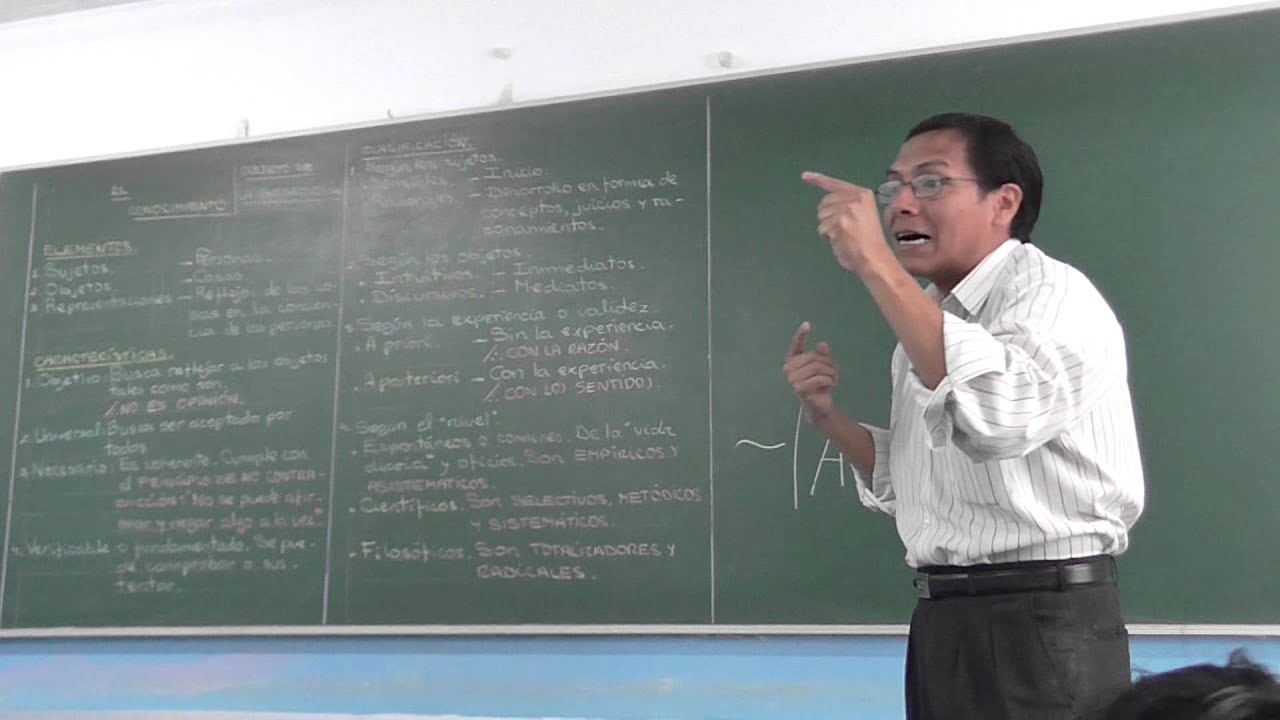 EL
CONOCIMIENTO
OBJETO DE
ELEMENTOS.
1. Sujetos. - Personas.
2. Objetos. - Cosas.
3. Representaciones - Reflejos de las co-
sas en la concien-
cia de las personas.
CARACTERÍSTICAS.
1. Objetivo: Busca reflejar a los objetos
tales como son.
NO ES OPINIÓN.
2. Universal: Busca ser aceptado por
todos
3. Necesario: Es coherente. Cumple con
el PRINCIPIO DE NO CONTRA-
DICCIÓN: "No se puede afir-
mar y negar algo a la vez".
4. Verificable o fundamentado. Se pue-
de comprobar o sus-
tentar.
CLASIFICACIÓN.
1. Según los sujetos.
Sensibles. - Inicio.
Racionales. - Desarrollo en forma de
conceptos, juicios y ra-
zonamientos.
2. Según los objetos.
Intuitivos. - Inmediatos.
Discursivos. - Mediatos.
3. Según la experiencia o validez
A priori. - Sin la experiencia.
CON LA RAZÓN.
A posteriori - Con la experiencia.
CON LOS SENTIDOS.
4. Según el "nivel"
Espontáneos o comunes. De la "vida
diaria" y oficios. Son EMPÍRICOS Y
ASISTEMÁTICOS.
Científicos. Son SELECTIVOS, METÓDICOS
Y SISTEMÁTICOS.
Filosóficos. Son TOTALIZADORES Y
RADICALES.
~ A